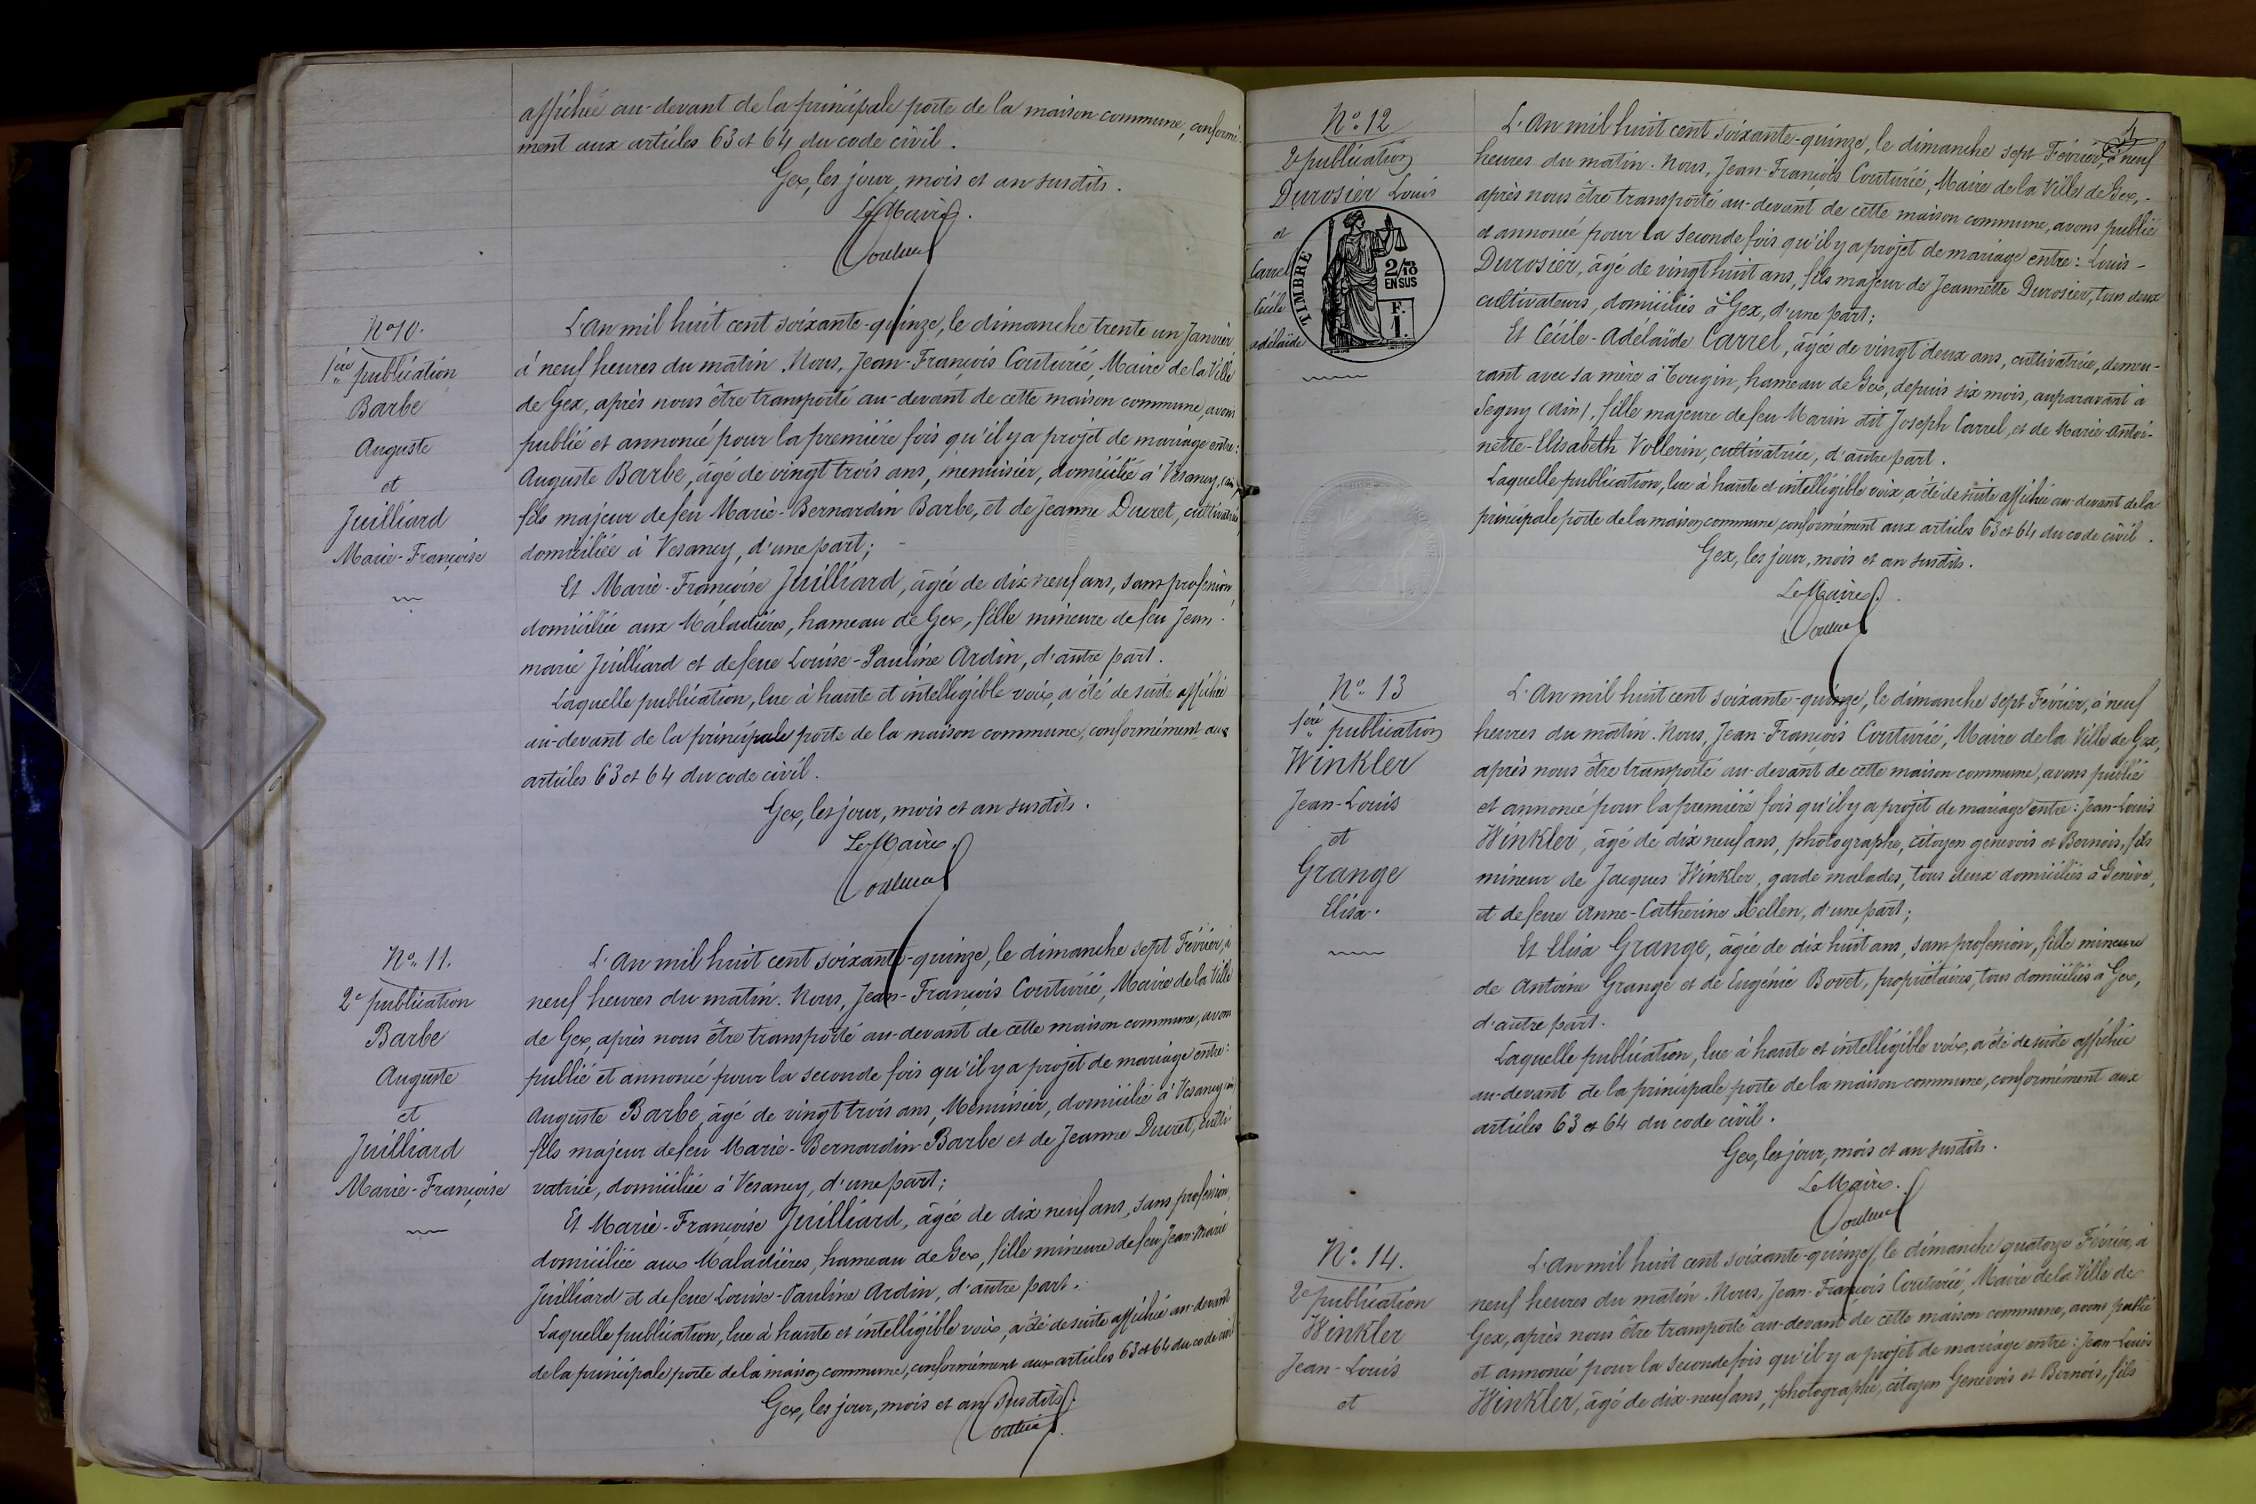 affichée au-devant de la principale porte de la maison commune, conformé-
ment aux articles 63 et 64 du code civil.
Gex, les jour, mois et an susdits.
Le Maire.
N° 10.
1ère publication
Barbe
Auguste
et
Juilliard
Marie-Françoise
L'an mil huit cent soixante-quinze, le dimanche trente un Janvier
à neuf heures du matin. Nous, Jean-François Couturié, Maire de la Ville
de Gex, après nous être transporté au-devant de cette maison commune, avons
publié et annoncé pour la première fois qu'il y a projet de mariage entre:
Auguste Barbe, âgé de vingt trois ans, menuisier, domicilié à Vesancy,
fils majeur de feu Marie-Bernardin Barbe, et de Jeanne Ducret, cultivatrice,
domiciliée à Vesancy, d'une part;
Et Marie-Françoise Juilliard, âgée de dix neuf ans, sans profession,
domiciliée aux Maladières, hameau de Gex, fille mineure de feu Jean-
marie Juilliard et de feue Louise-Pauline Ardin, d'autre part.
Laquelle publication, lue à haute et intelligible voix, a été de suite affichée
au-devant de la principale porte de la maison commune, conformément aux
articles 63 et 64 du code civil.
Gex, les jour, mois et an susdits.
Le Maire.
N° 11.
2e publication
Barbe
Auguste
et
Juilliard
Marie-Françoise
L'an mil huit cent soixante-quinze, le dimanche sept Février, à
neuf heures du matin. Nous, Jean-François Couturié, Maire de la Ville
de Gex, après nous être transporté au-devant de cette maison commune, avons
publié et annoncé pour la seconde fois qu'il y a projet de mariage entre:
Auguste Barbe, âgé de vingt trois ans, Menuisier, domicilié à Vesancy
fils majeur de feu Marie-Bernardin Barbe et de Jeanne Ducret, culti
vatrice, domiciliée à Vesancy, d'une part;
Et Marie-Françoise Juilliard, âgée de dix neuf ans, sans profession,
domiciliée aux Maladières, hameau de Gex, fille mineure de feu Jean-Marie
Juilliard et de feue Louise-Pauline Ardin, d'autre part.
Laquelle publication, lue à haute et intelligible voix, a été de suite affichée au-devant
de la principale porte de la maison commune, conformément aux articles 63 et 64 du code civil
Gex, les jour, mois et an susdits.
N° 12
2e publication
Durosier Louis
et
Carrel
Cécile
adélaïde
TIMBRE
2/10
EN SUS
F.
1.
L'An mil huit cent soixante-quinze, le dimanche sept Février, à neuf
heures du matin. Nous, Jean-François Couturié, Maire de la Ville de Gex,
après nous être transporté au-devant de cette maison commune, avons publié
et annoncé pour la seconde fois qu'il y a projet de mariage entre: Louis
Durosier, âgé de vingt huit ans, fils majeur de Jeannette Durosier, tous deux
cultivateurs, domiciliés à Gex, d'une part;
Et Cécile-Adélaïde Carrel, âgée de vingt deux ans, cultivatrice, demeu-
rant avec sa mère à Tougin, hameau de Gex, depuis six mois, auparavant à
Segny (Ain), fille majeure de feu Marin dit Joseph Carrel, et de Marie-Antoi-
nette-Elisabeth Vollerin, cultivatrice, d'autre part.
Laquelle publication, lue à haute et intelligible voix, a été de suite affichée au-devant de la
principale porte de la maison commune, conformément aux articles 63 et 64 du code civil.
Gex, les jour, mois et an susdits.
Le Maire.
N° 13
1ère publication
Winkler
Jean-Louis
et
Grange
Elisa.
L'An mil huit cent soixante-quinze, le dimanche sept Février, à neuf
heures du matin. Nous, Jean-François Couturié, Maire de la Ville de Gex,
après nous être transporté au-devant de cette maison commune, avons publié
et annoncé pour la première fois qu'il y a projet de mariage entre: Jean-Louis
Winkler, âgé de dix neuf ans, photographe, citoyen genevois et Bernois, fils
mineur de Jacques Winkler, garde malades, tous deux domiciliés à Genève,
et de feue Anne-Catherine Mellen, d'une part;
Et Elisa Grange, âgée de dix huit ans, sans profession, fille mineure
de Antoine Grange et de Eugénie Bovet, propriétaires, tous domiciliés à Gex,
d'autre part.
Laquelle publication, lue à haute et intelligible voix, a été de suite affichée
au-devant de la principale porte de la maison commune, conformément aux
articles 63 et 64 du code civil.
Gex, les jour, mois et an susdits.
Le Maire.
N° 14.
2e publication
Winkler
Jean-Louis
et
L'An mil huit cent soixante-quinze, le dimanche quatorze Février, à
neuf heures du matin. Nous, Jean-François Couturié, Maire de la Ville de
Gex, après nous être transporté au-devant de cette maison commune, avons publié
et annoncé pour la seconde fois qu'il y a projet de mariage entre: Jean-Louis
Winkler, âgé de dix-neuf ans, photographe, citoyen Genevois et Bernois, fils